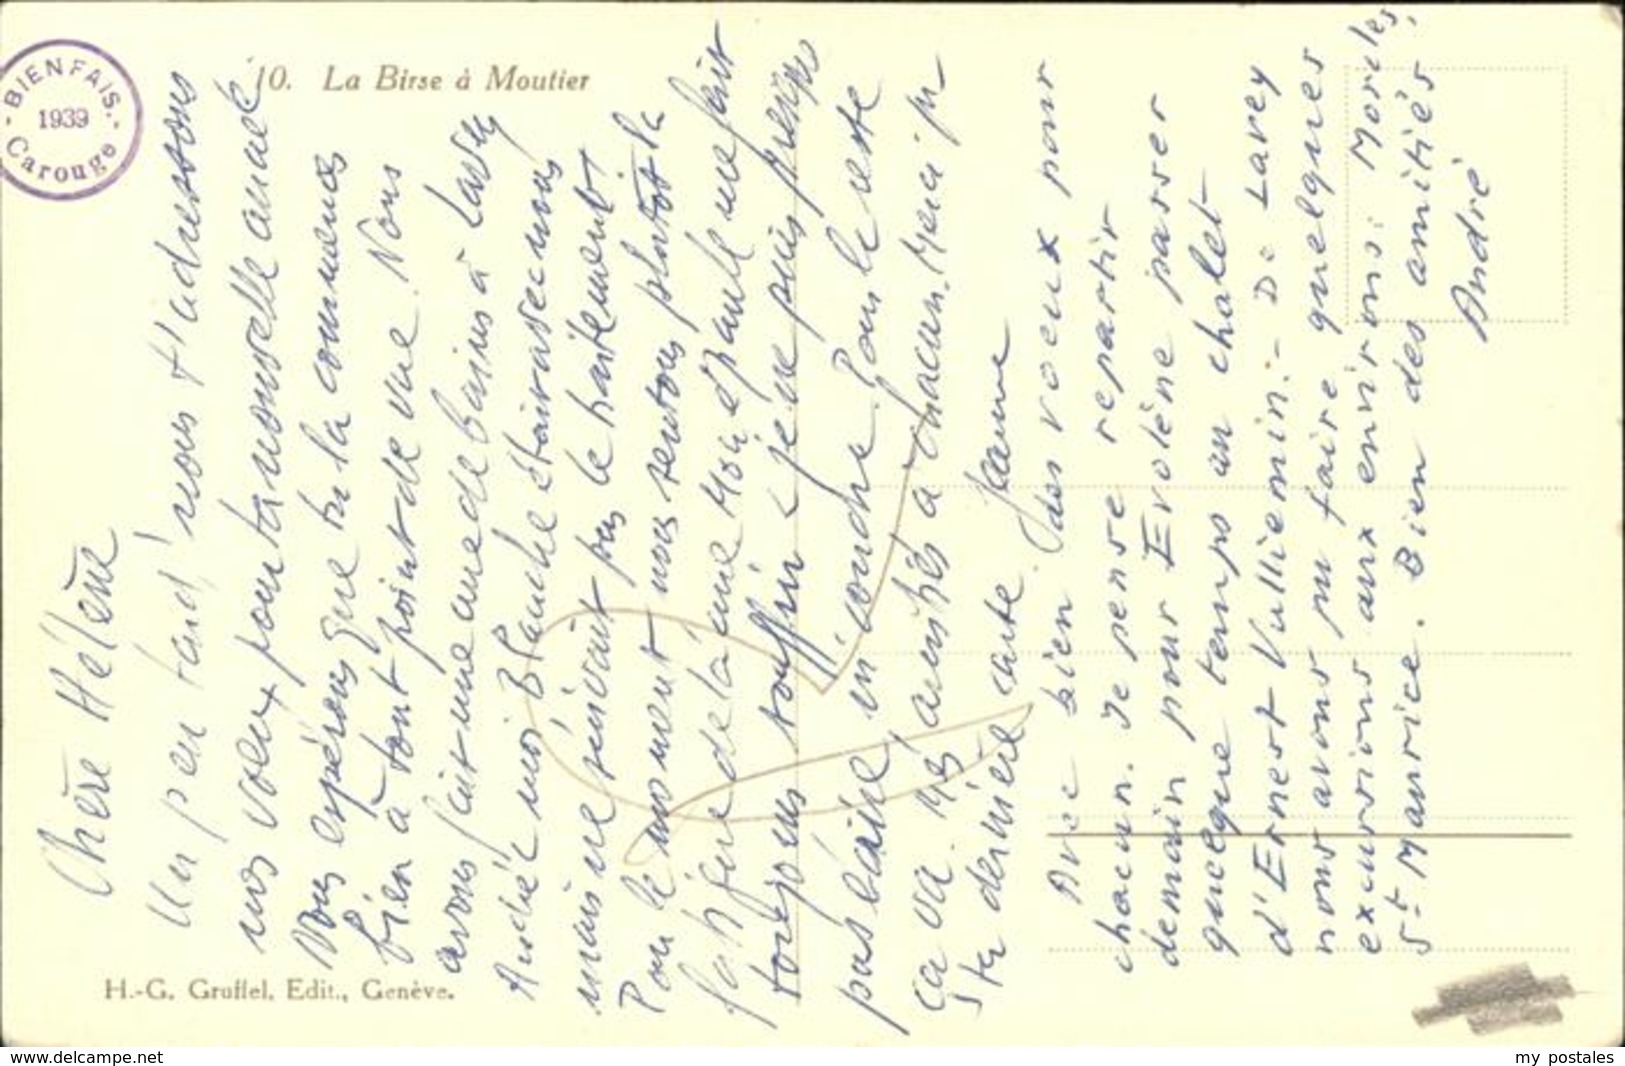 10. La Birse à Moutier
BIENFAIS.
1939
Carouge
Chère Hélène
Un peu tard, nous t'adressons
nos voeux pour ta nouvelle année.
Nous espérons que tu la commences
bien à tout point de vue. Nous
avons fait une cure de bains à Lavey
André & moi. Blanche était avec nous
mais ne suivait pas le traitement.
Pour le moment nous sentons plutôt la
fatigue de la cure. Mon épaule me fait
toujours souffrir & je ne puis presque
pas m'coucher. Pour le reste
ça va. Mes amitiés à chacun. Merci pr
ta dernière carte. Jeanne
Avec bien des voeux pour
chacun. Je pense repartir
demain pour Evolène passer
quelque temps au chalet
d'Ernest Vulliemin. - De Lavey
nous avons pu faire quelques
excursions aux environs: Morcles,
St Maurice. Bien des amitiés
André
H.-G. Gruffel, Edit., Genève.
www.delcampe.net
my postales